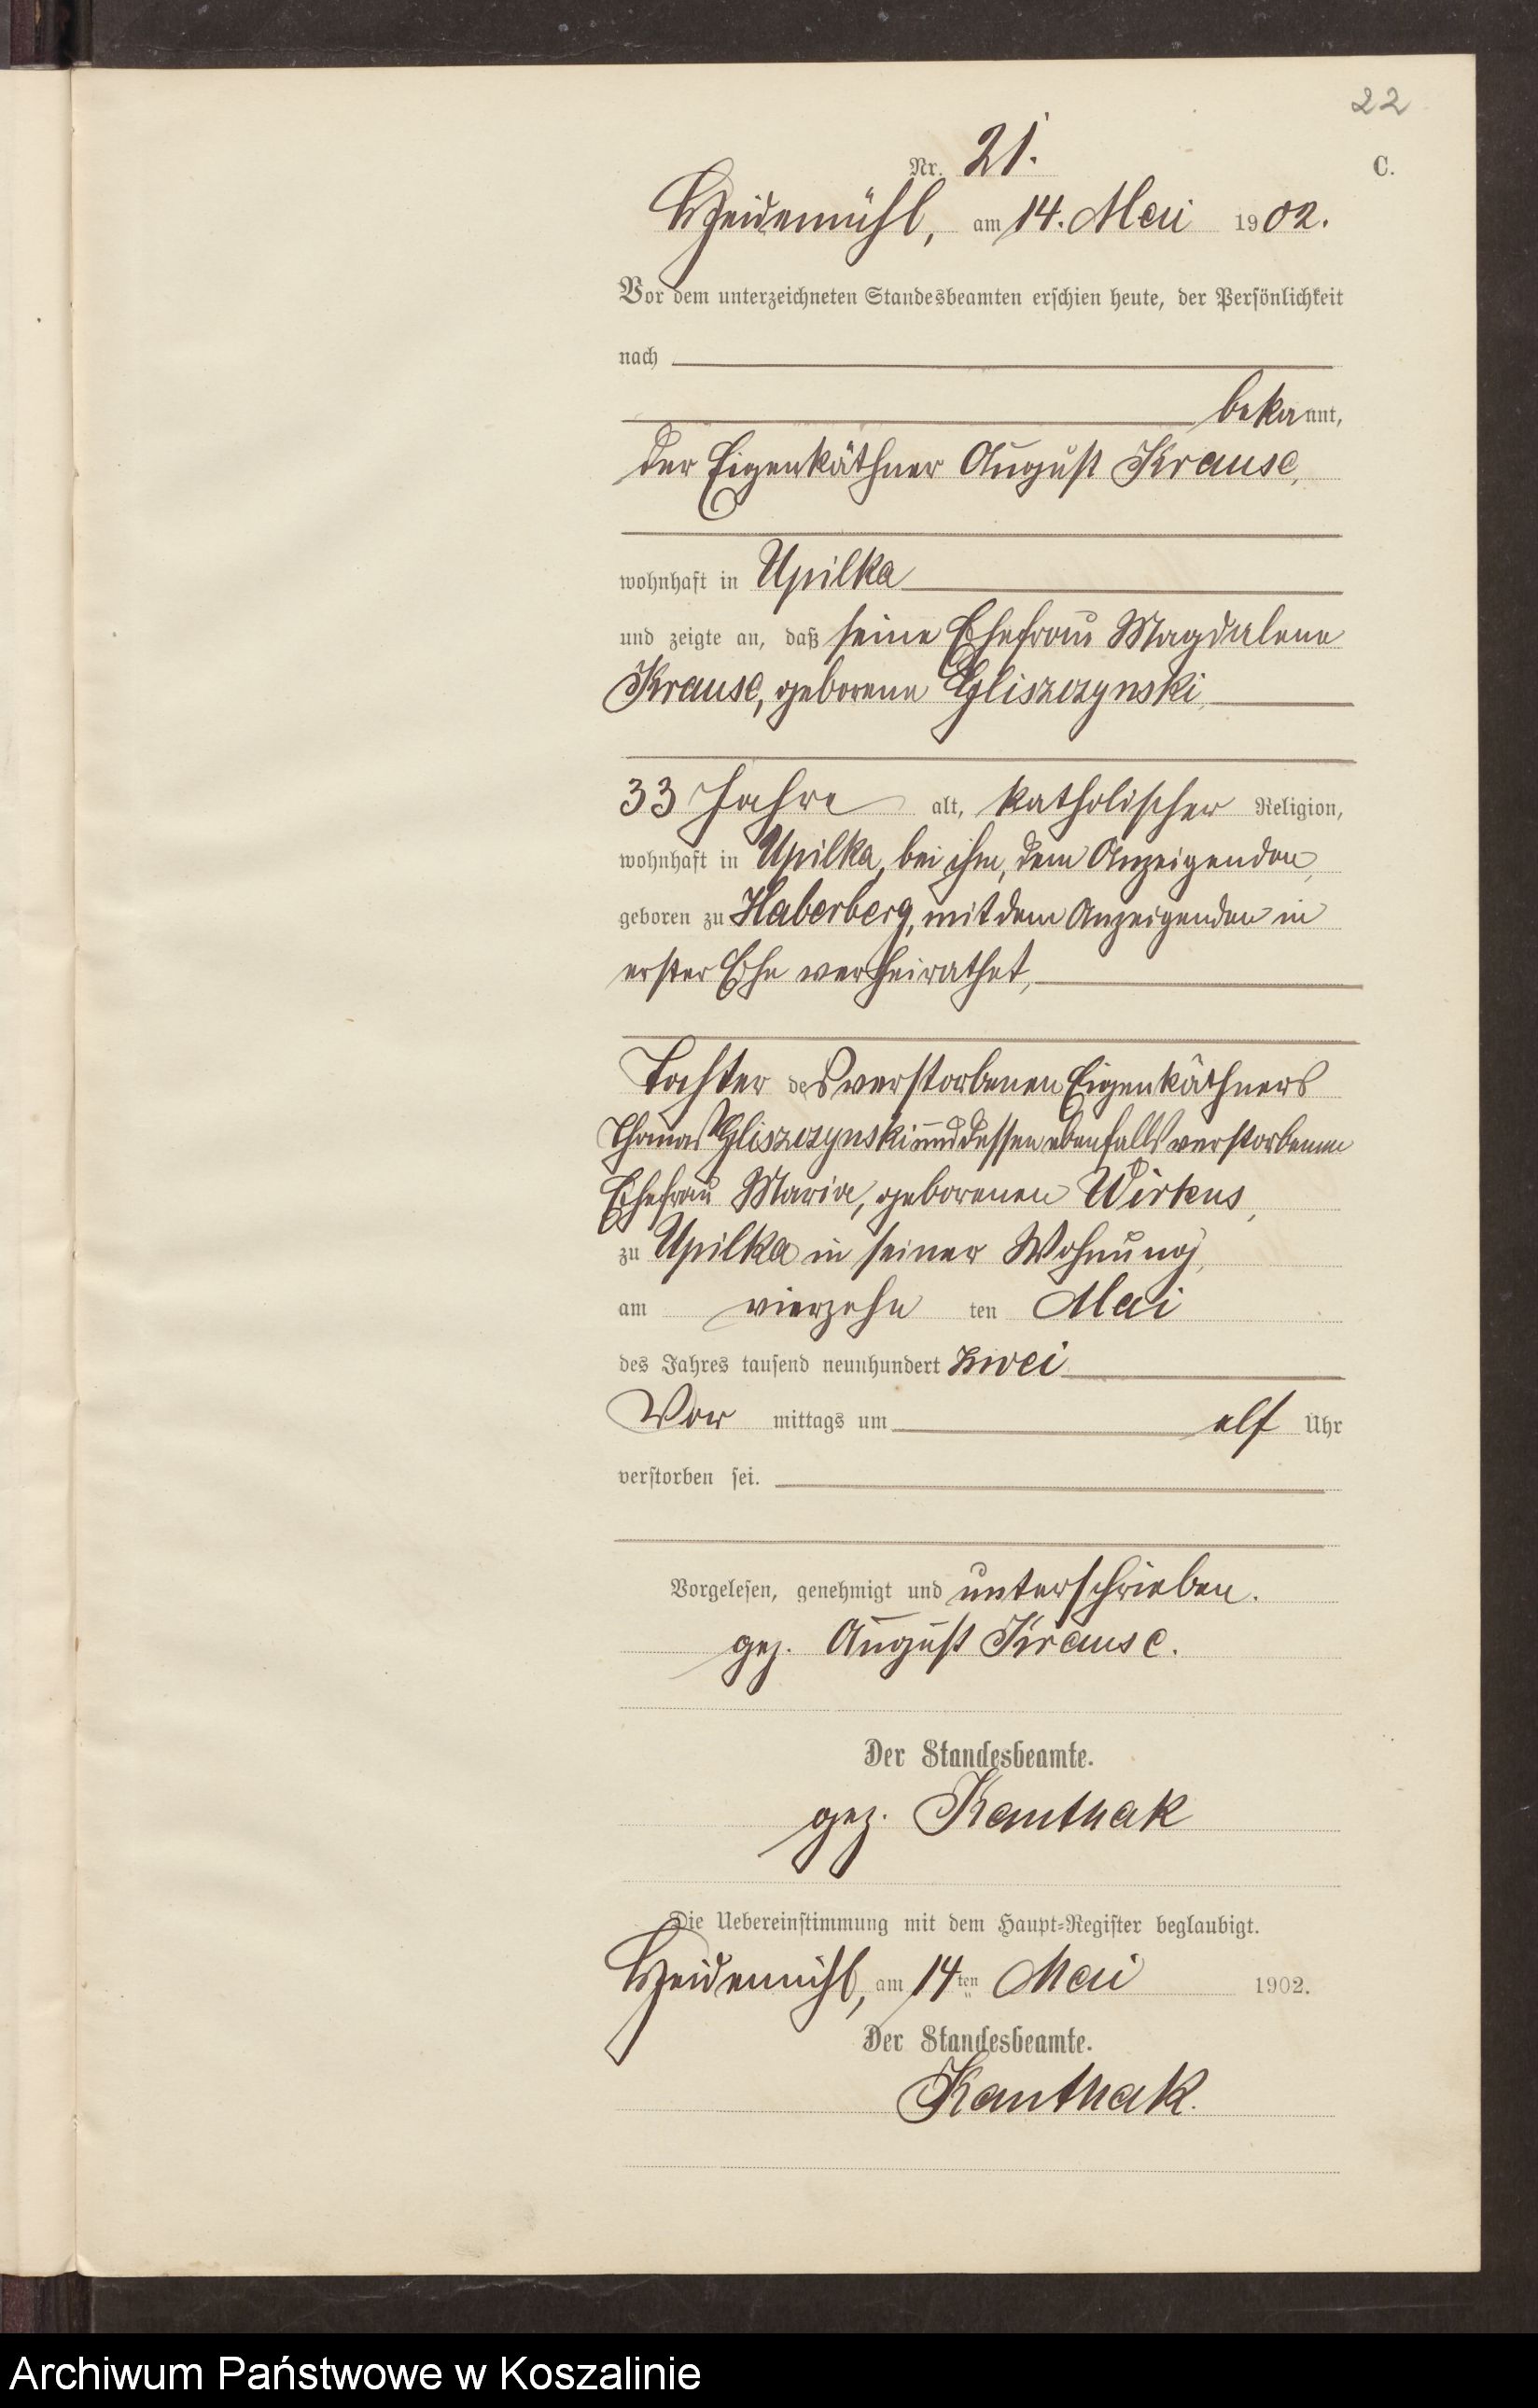 22
Nr. 21.
C.
Heidemühl, am 14. Mai 1902.
Vor dem unterzeichneten Standesbeamten erschien heute, der Persönlichkeit
nach
bekannt,
der Eigenkäthner August Krause,
wohnhaft in Upilka
und zeigte an, daß seine Ehefrau Magdalena
Krause, geborene Gliszczynski,
33 Jahre alt, katholischer Religion,
wohnhaft in Upilka, bei ihm, dem Anzeigenden,
geboren zu Haberberg, mit dem Anzeigenden in
erster Ehe verheirathet,
Tochter des verstorbenen Eigenkäthners
Thomas Gliszczynski und dessen ebenfalls verstorbenen
Ehefrau Maria, geborenen Wirkus,
zu Upilka in seiner Wohnung,
am vierzehn ten Mai
des Jahres tausend neunhundert zwei
Vor mittags um elf Uhr
verstorben sei.
Vorgelesen, genehmigt und unterschrieben.
gez. August Krause.
Der Standesbeamte.
gez. Kanthak
Die Uebereinstimmung mit dem Haupt-Register beglaubigt.
Heidemühl, am 14ten Mai 1902.
Der Standesbeamte.
Kanthak.
Archiwum Państwowe w Koszalinie